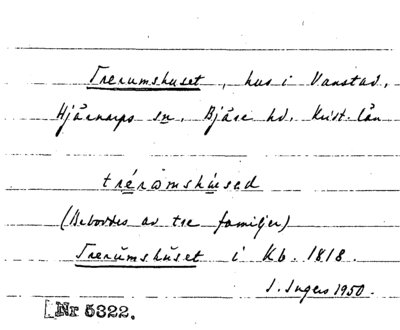 Trerumshuset, hus i Vanstad,
Hjärnarps sn. Bjäre hd. Krist. län
trérωmshúsəd
(Beboddes av tre familjer)
Trerŭmshŭset i Kb. 1818.
I. Ingers 1950.
Nr 5322.